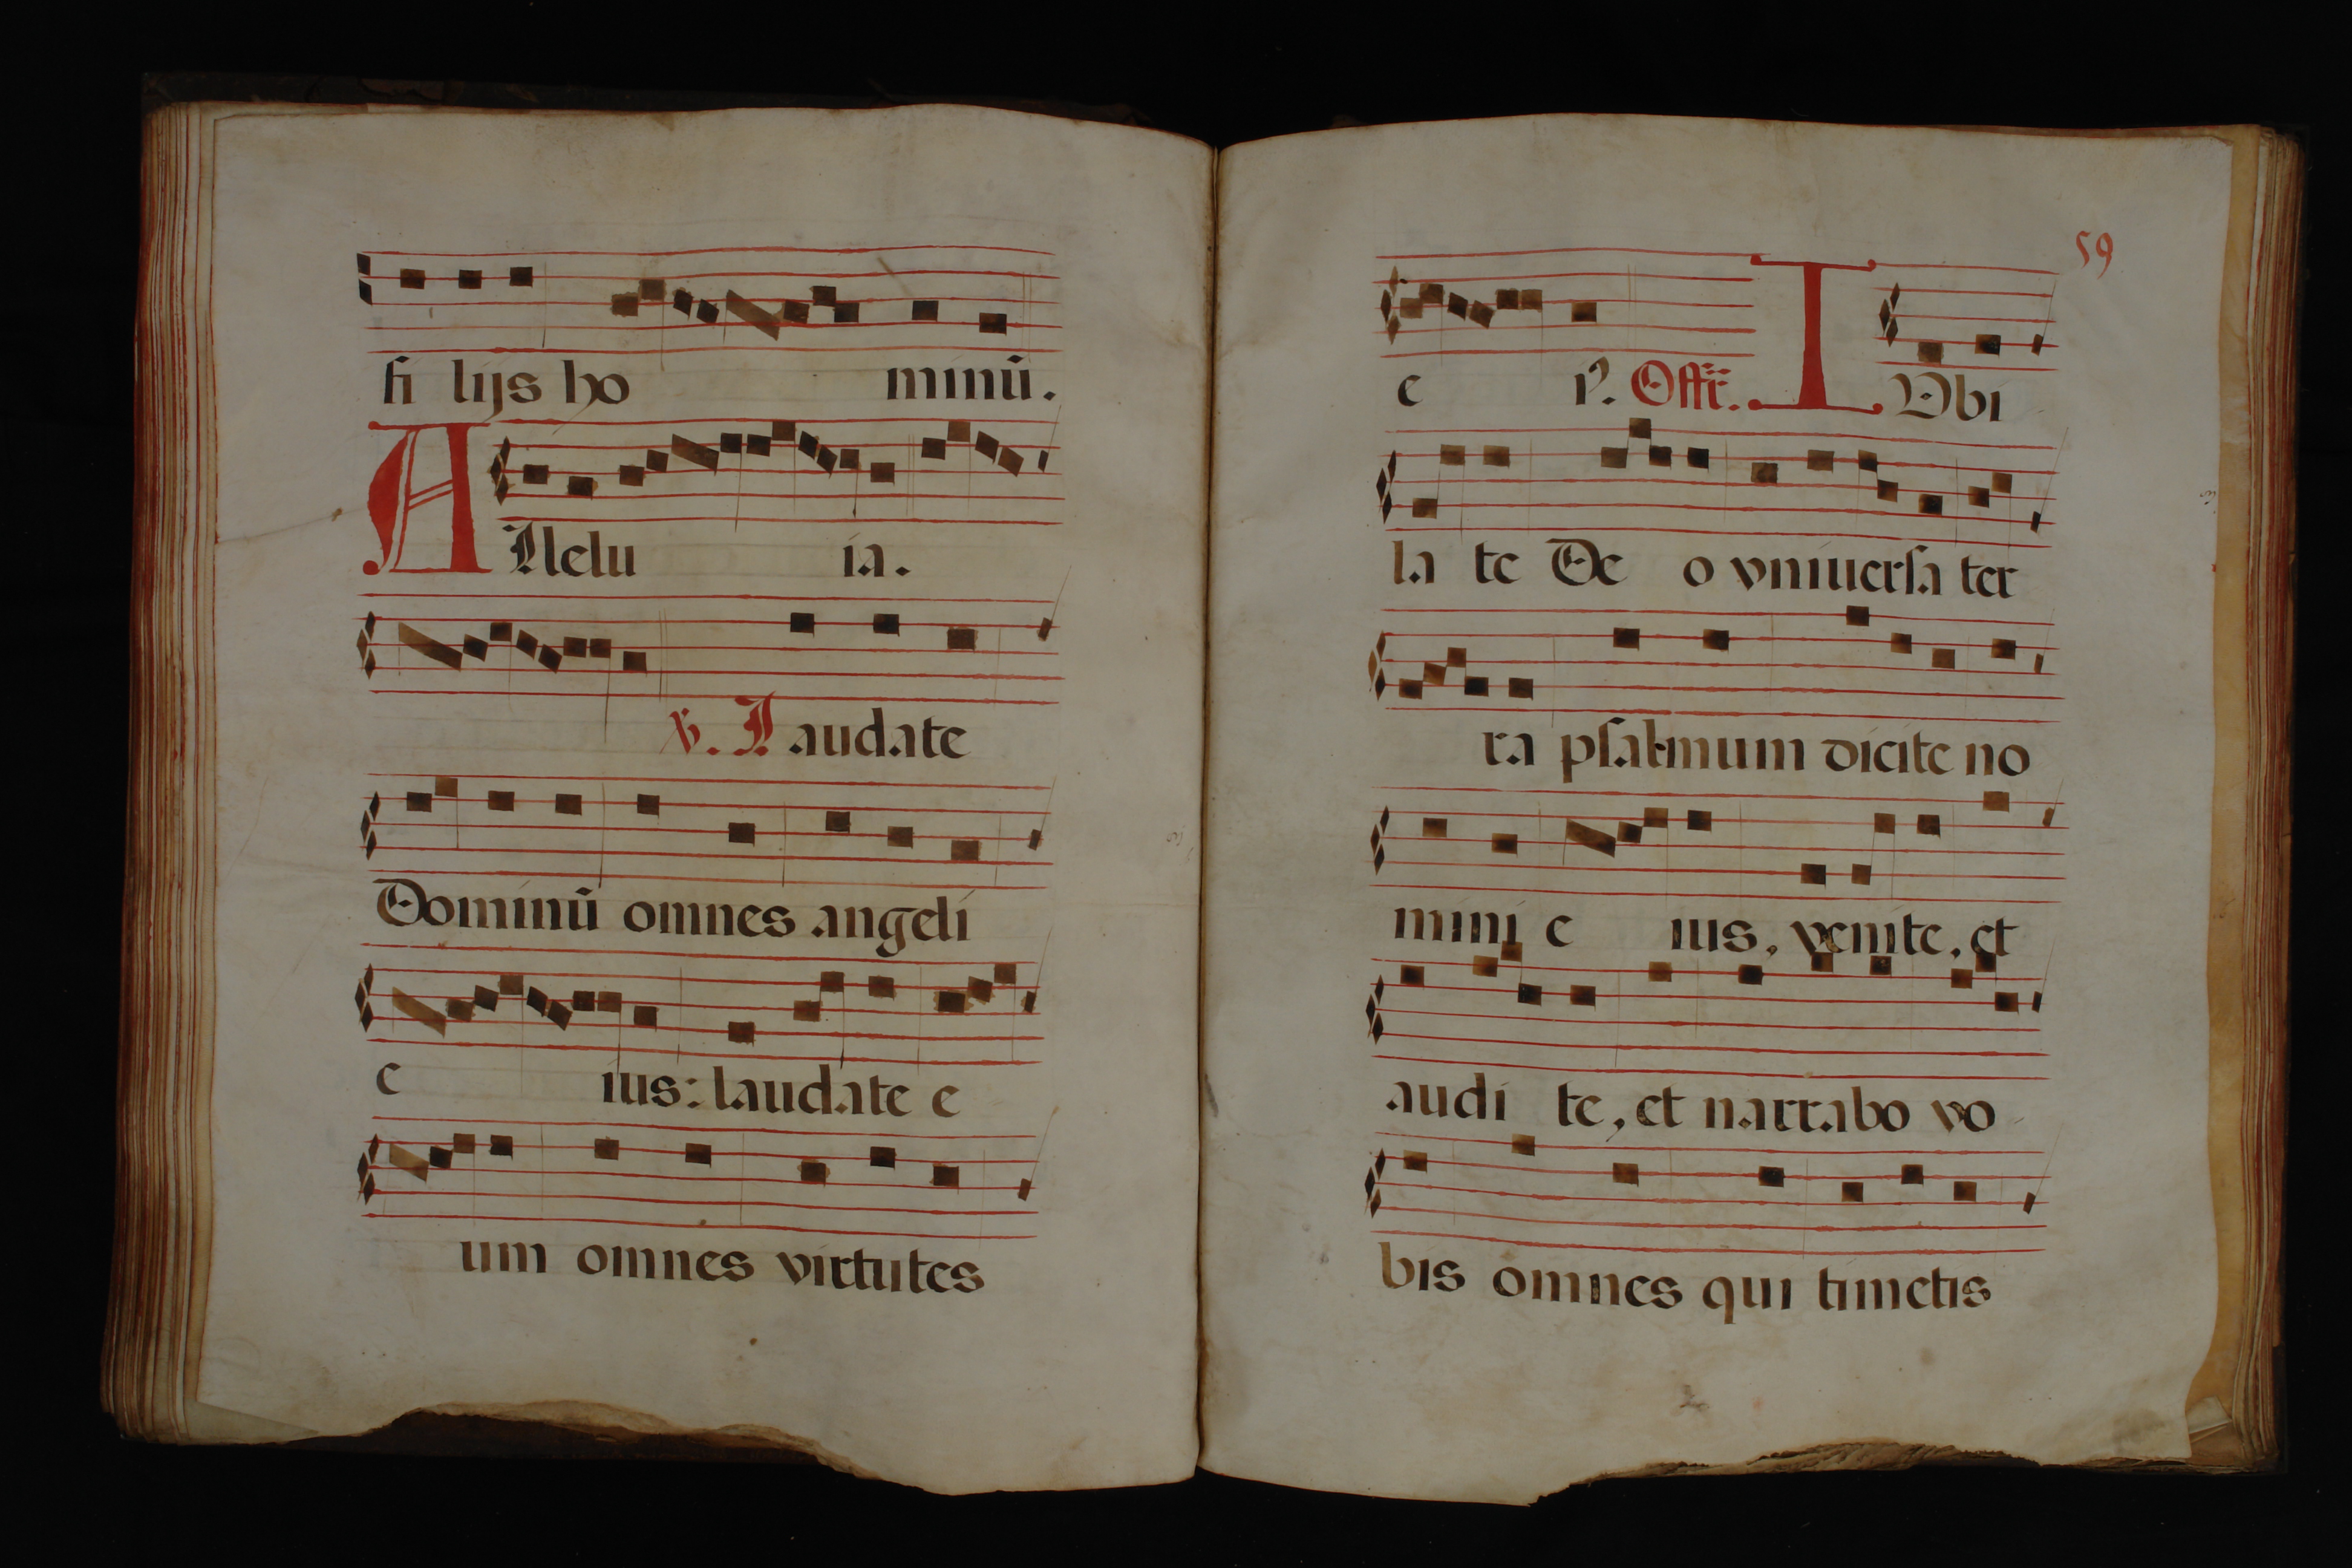 fi lijs ho minū.
Allelu ia.
℣. Laudate
Dominū omnes angeli
e ius: laudate e
um omnes virtutes
59
e i9. Offẽ. IVbi
la te De o vniuersa ter
ra psalmum dicite no
mini e ius, venite, et
audi te, et narrabo vo
bis omnes qui timetis